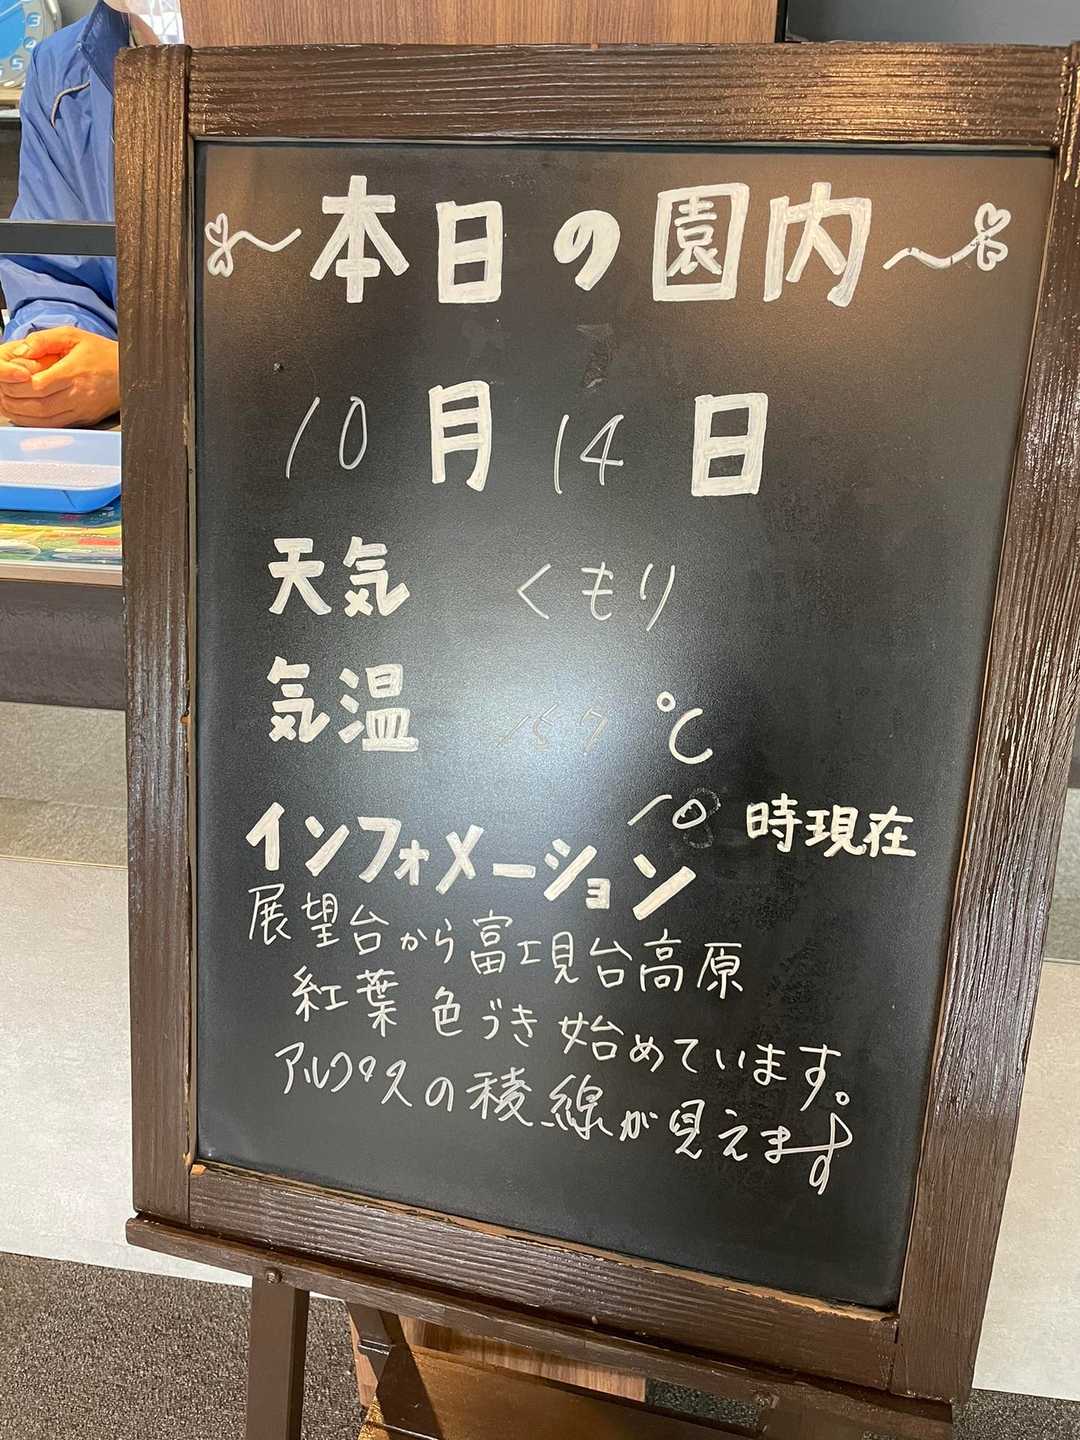 ～本日の園内～
10月14日
天気 くもり
気温 15.7 ℃
10時現在
インフォメーション
展望台から富士見台高原
紅葉 色づき始めています。
アルプスの稜線が見えます